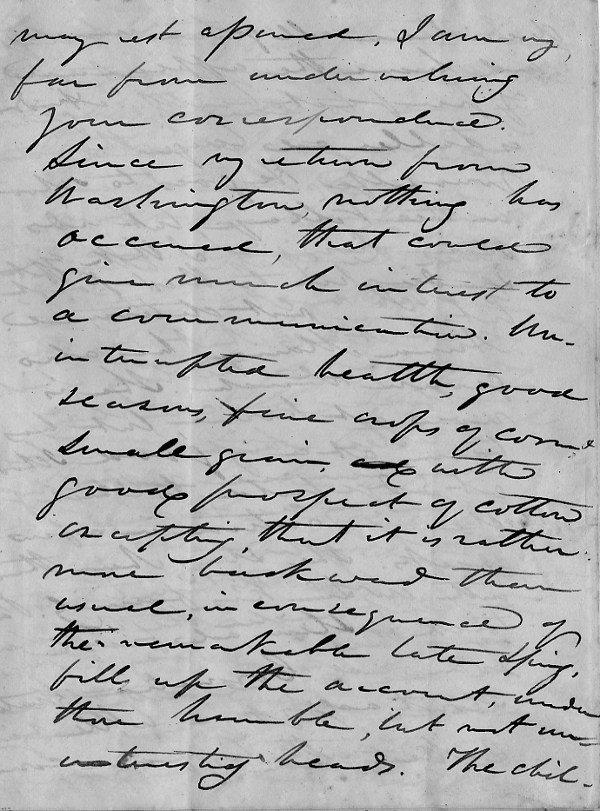 may rest assured, I am very
far from undervaluing
your correspondence.
Since my return from
Washington, nothing has
occurred, that could
give much interest to
a communication. Un-
interrupted health, good
seasons, fine crops of corn &
small grain, with
good prospect of cotton
excepting, that it is rather
more backward than
usual, in consequence of
the remarkable late Spring,
fill up the account, under
those humble, but not un-
interesting heads. The chil-